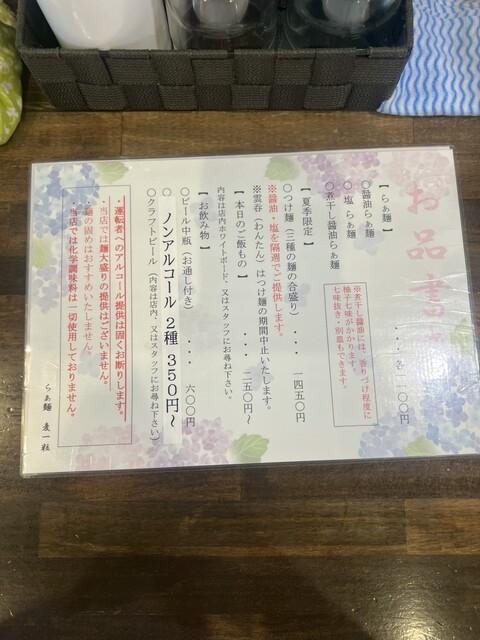 お品書
【らぁ麺】
〇醤油らぁ麺
〇塩らぁ麺 ・・・・各一一〇〇円
〇煮干し醤油らぁ麺
※煮干し醤油には、香りづけ程度に
柚子七味がかかります。
七味抜き・別皿もできます。
【夏季限定】
〇つけ麺（三種の麺の合盛り）・・・一四五〇円
※醤油・塩を隔週でご提供します。
※雲呑（わんたん）はつけ麺の期間中止いたします。
【本日のご飯もの】 ・・・ 二五〇円～
内容は店内ホワイトボード、又はスタッフにお尋ね下さい。
【お飲み物】
〇ビール中瓶（お通し付き） ・・・ 六〇〇円
〇ノンアルコール２種 ３５０円～
〇クラフトビール（内容は店内、又はスタッフにお尋ね下さい）
・運転者へのアルコール提供は固くお断りします。
・当店では麺大盛りの提供はございません。
・麺の固めはおすすめいたしません。
・当店では化学調味料は一切使用しておりません。
らぁ麺 麦一粒